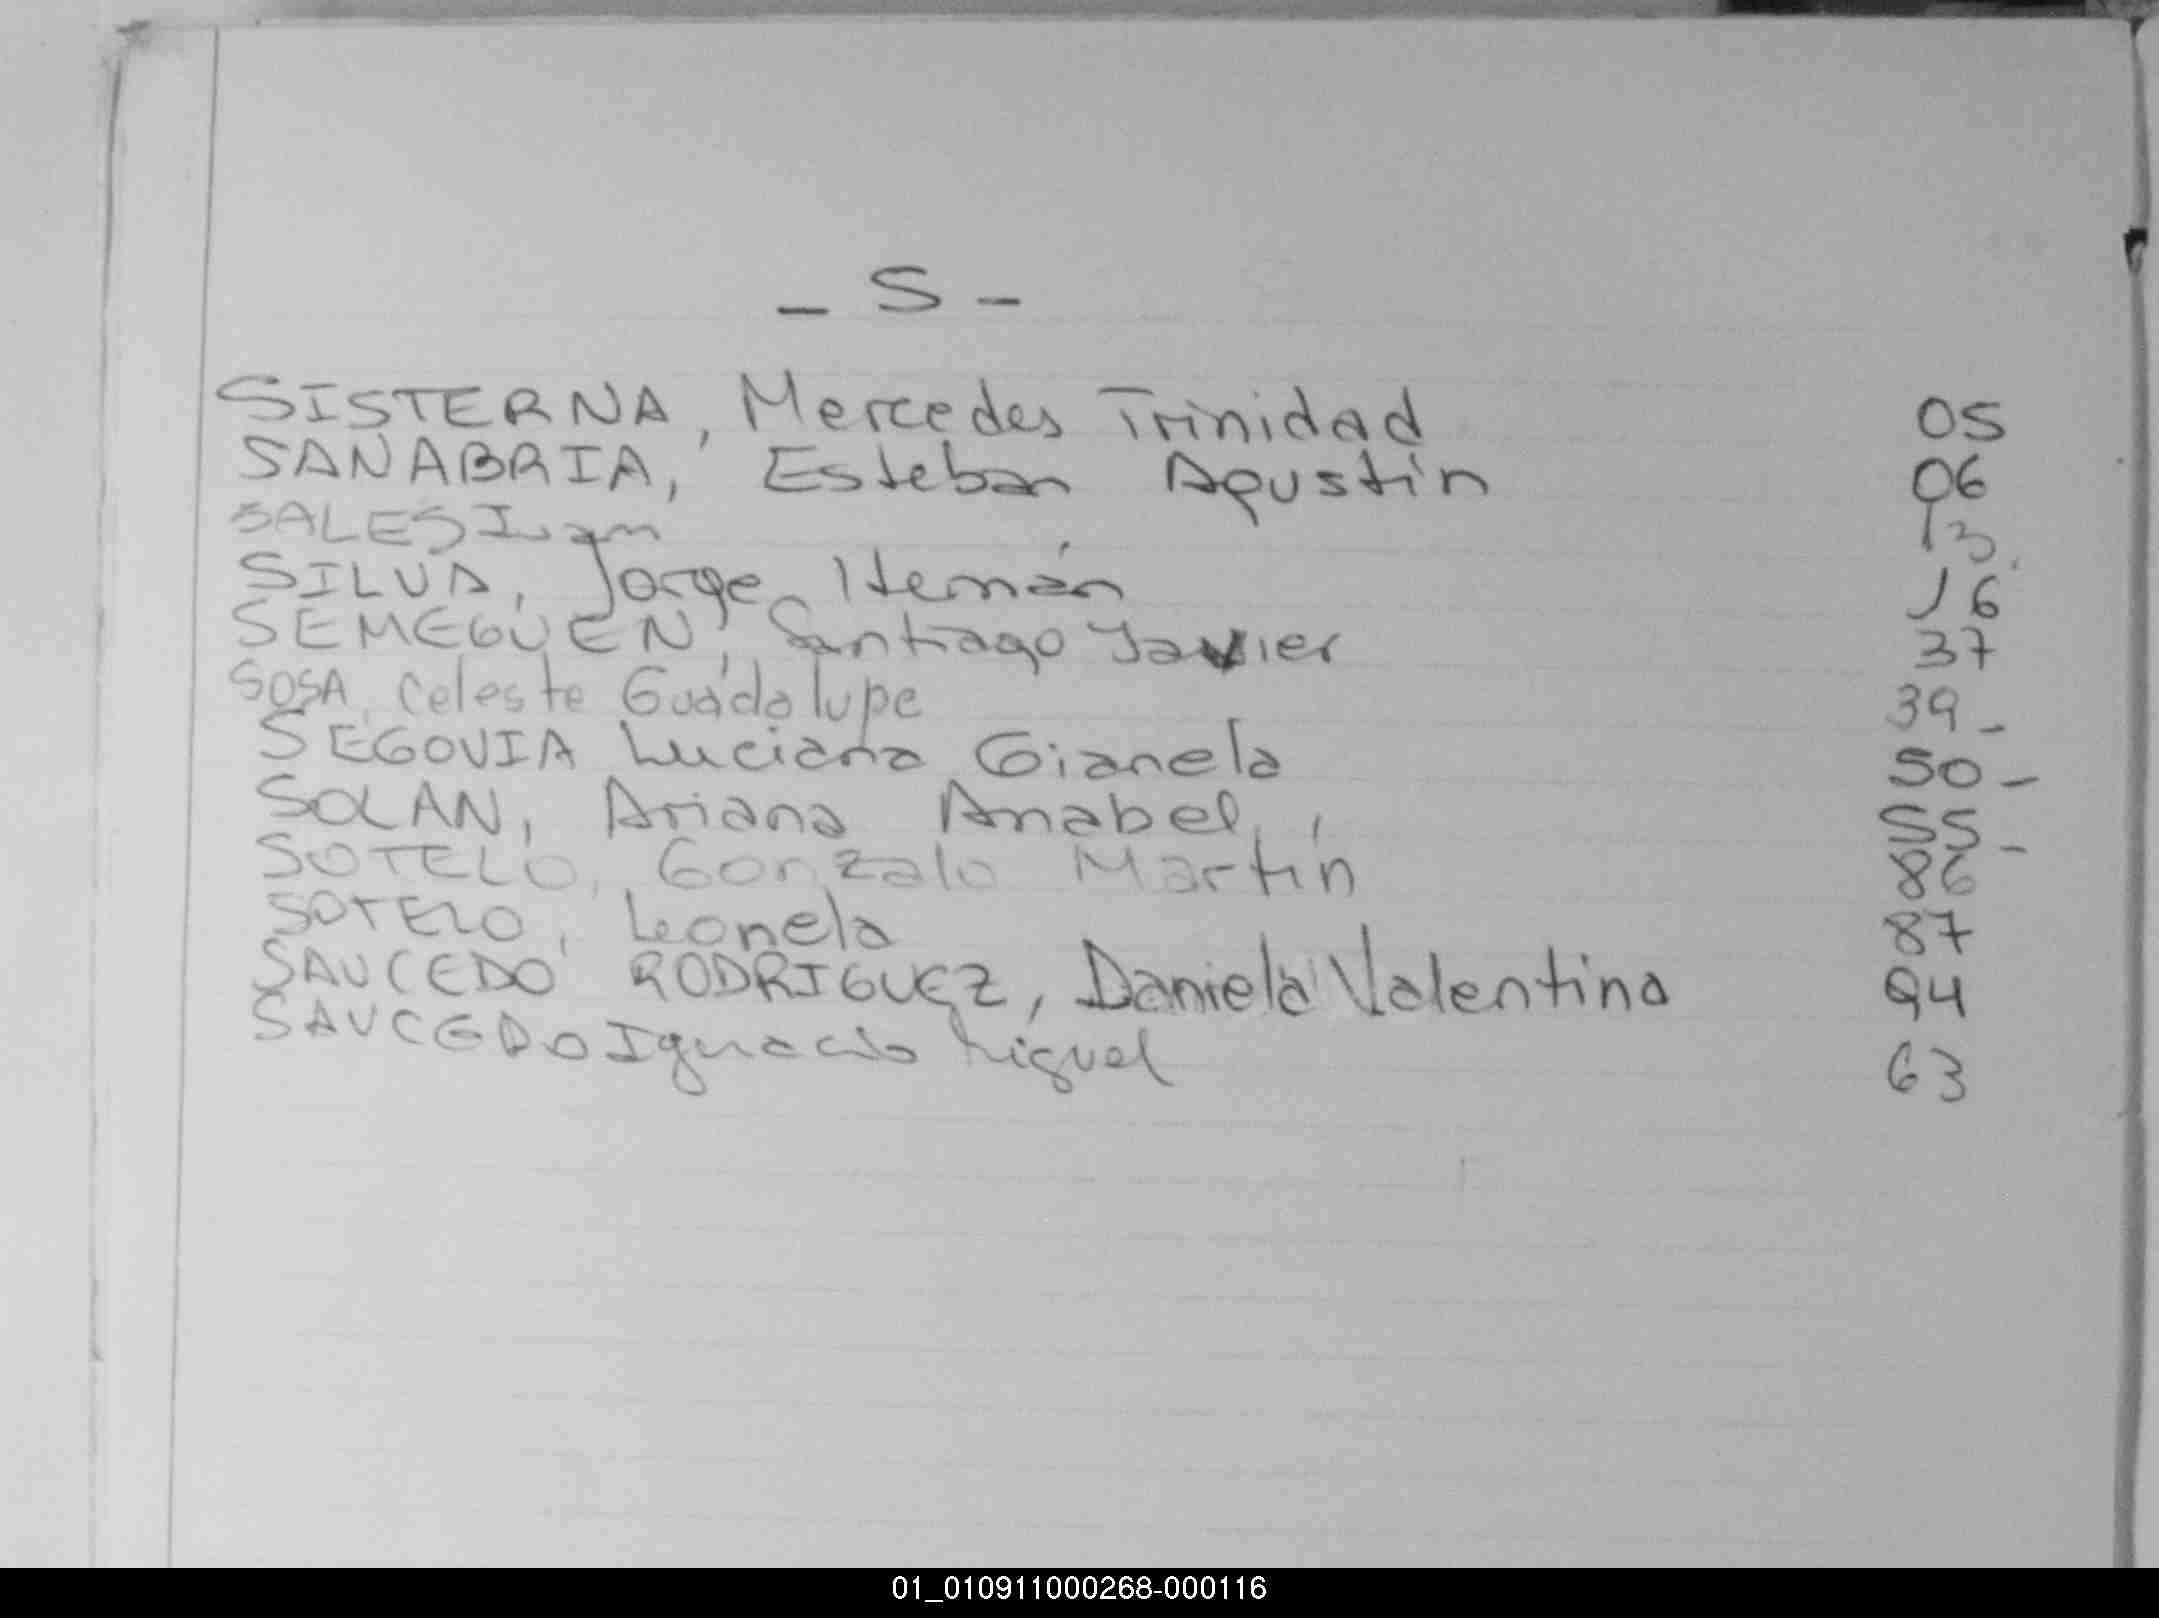 - S -
SISTERNA, Mercedes Trinidad 05
SANABRIA, Esteban Agustín 06
SALES Ivan 13.
SILVA, Jorge Hernán 16
SEMEGUEN, Santiago Javier 37
SOSA, Celeste Guadalupe 39-
SEGOVIA Luciana Gianela 50-
SOLAN, Ariana Anabel, 55-
SOTELO, Gonzalo Martín 86
SOTELO, Leonela 87
SAUCEDO RODRIGUEZ, Daniela Valentina 94
SAUCEDO Ignacio Miguel 63
01_010911000268-000116